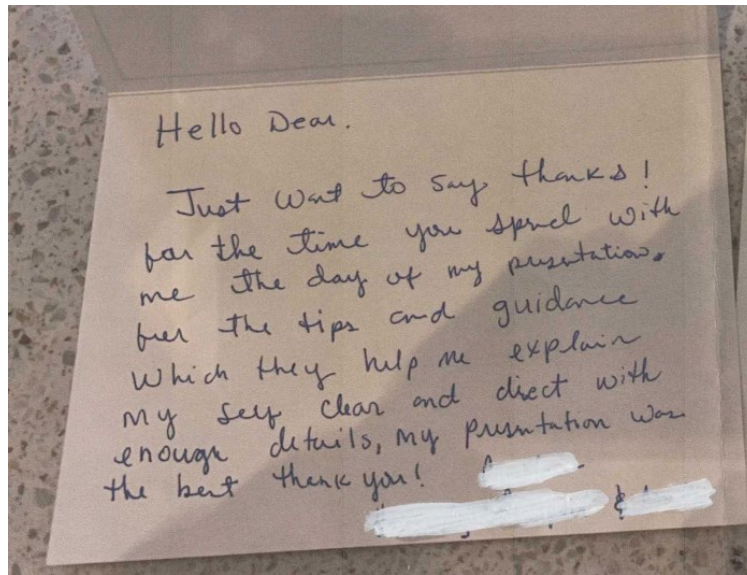 Hello Dear.
Just want to say thanks!
for the time you spend with
me the day of my presentation.
for the tips and guidance
which they help me explain
my self clear and direct with
enough details, my presentation was
the best thank you!
&